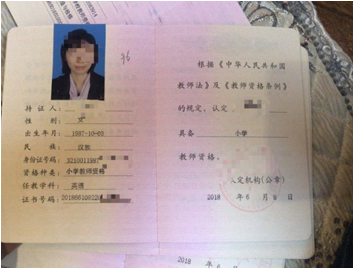 持 证 人：
性 别：女
出生年月：1987-10-09
民 族：汉族
身份证号码：3210011987
资格种类：小学教师资格
任教学科：英语
证书号码：201866108220
根据《中华人民共和国
教师法》及《教师资格条例》
的规定，认定
具备 小学
教师资格。
认定机构(公章)
2018 年 6 月 日